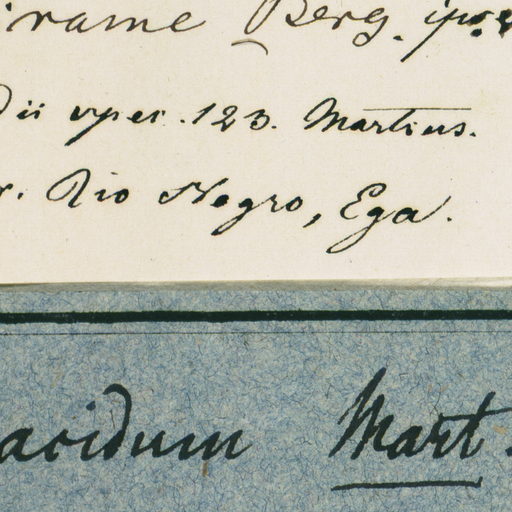 irame Berg. ipse
dii spec. 123. Martius.
r. Rio Negro, Ega.
acidum Mart.